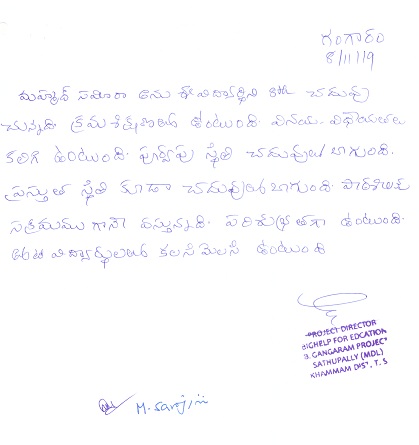 గంగారం
8/11/19
మహ్మద్ సమీరా అను ఈ విద్యార్థిని 8th చదువు
చున్నది. క్రమశిక్షణతో ఉంటుంది. వినయ, విధేయతలు
కలిగి ఉంటుంది. పూర్వపు స్థితి చదువులో బాగుంది.
ప్రస్తుత స్థితి కూడా చదువులో బాగుంది. పాఠశాలకు
సక్రమముగానే వస్తున్నది. పరిశుభ్రతగా ఉంటుంది.
తోటి విద్యార్థులతో కలసి మెలసి ఉంటుంది
PROJECT DIRECTOR
BIGHELP FOR EDCATION
B. GANGARAM PROJECT
SATHUPALLY (MDL)
KHAMMAM DIST, T. S
M. Sarojini